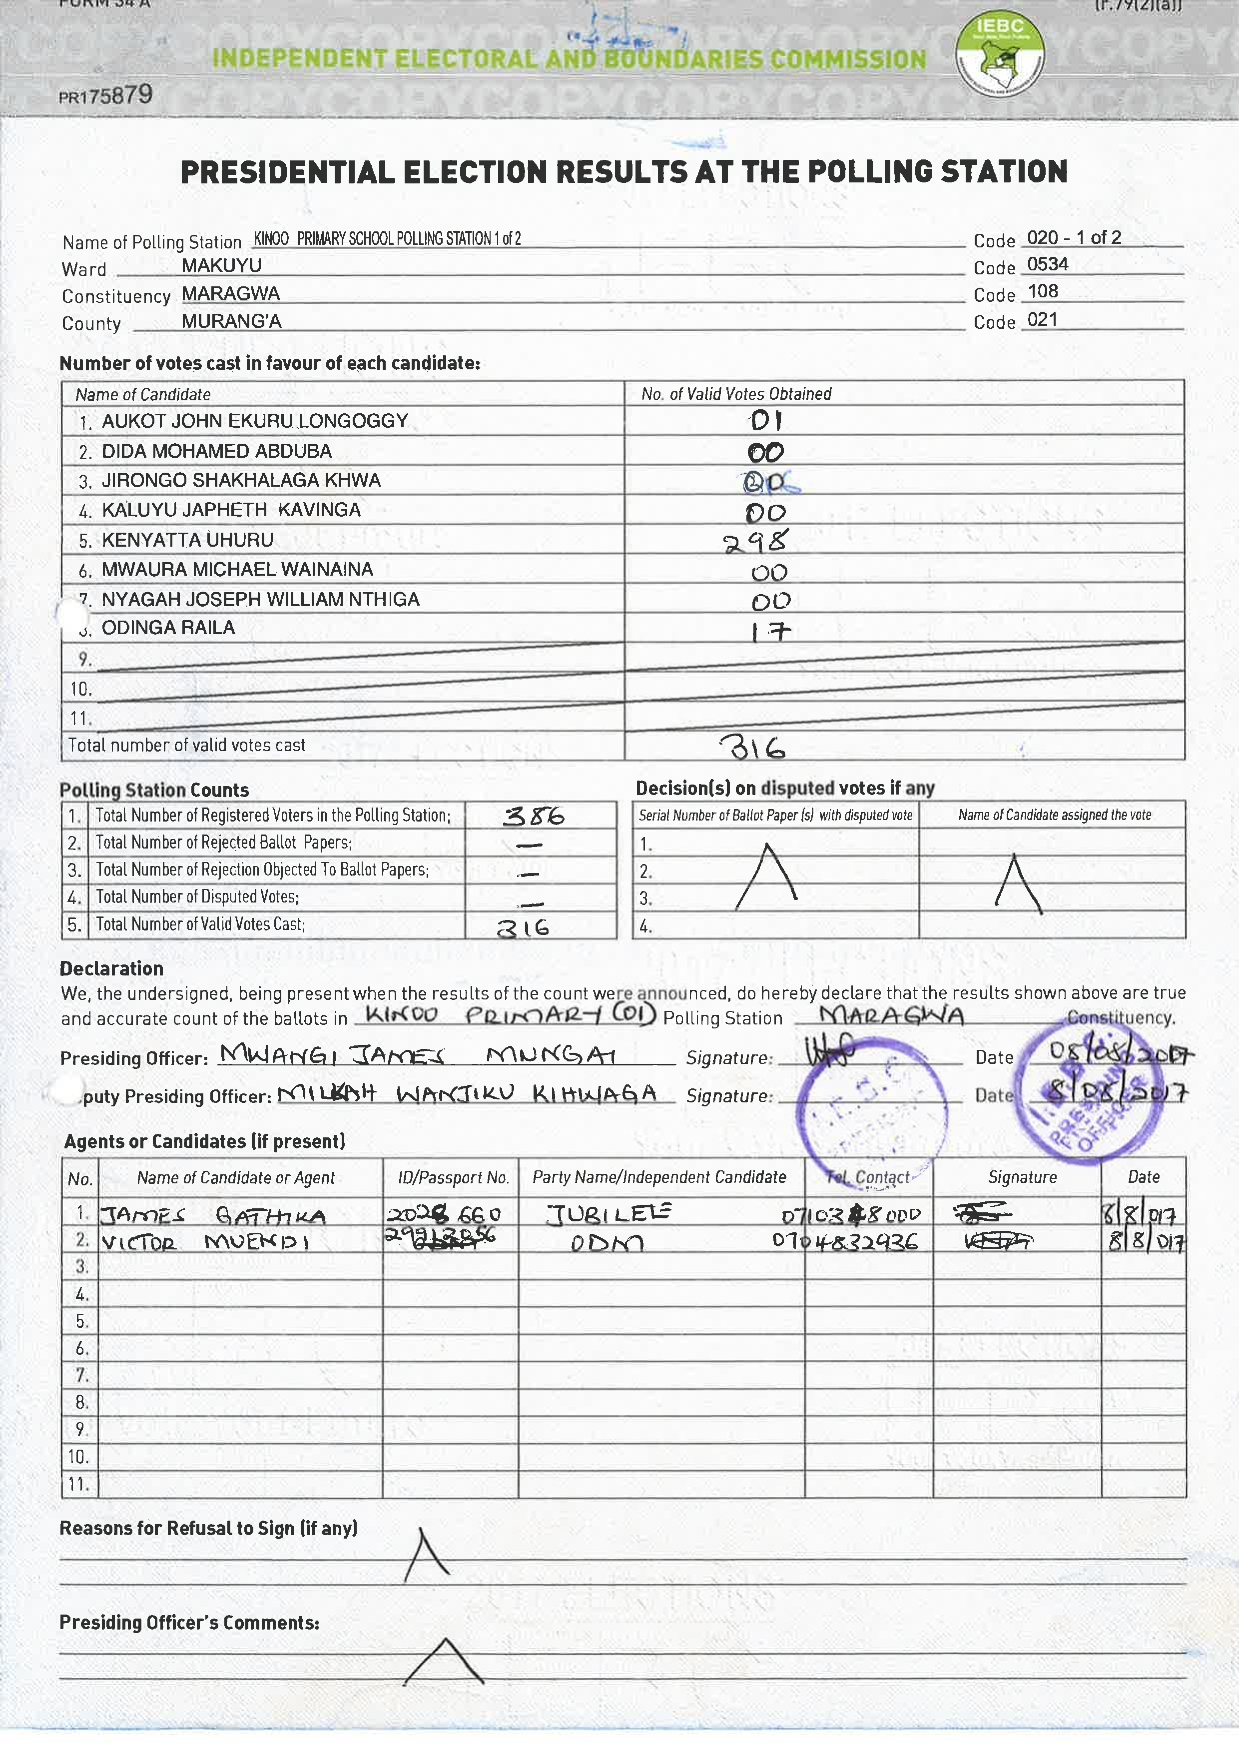 FORM 34 A (r.79(2)(a))
INDEPENDENT ELECTORAL AND BOUNDARIES COMMISSION
IEBC
PR175879
PRESIDENTIAL ELECTION RESULTS AT THE POLLING STATION
Name of Polling Station KINOO PRIMARY SCHOOL POLLING STATION 1 of 2 Code 020 - 1 of 2
Ward MAKUYU Code 0534
Constituency MARAGWA Code 108
County MURANG'A Code 021
Number of votes cast in favour of each candidate:
Name of Candidate No. of Valid Votes Obtained
1. AUKOT JOHN EKURU LONGOGGY 01
2. DIDA MOHAMED ABDUBA 00
3. JIRONGO SHAKHALAGA KHWA 00
4. KALUYU JAPHETH KAVINGA 00
5. KENYATTA UHURU 298
6. MWAURA MICHAEL WAINAINA 00
7. NYAGAH JOSEPH WILLIAM NTHIGA 00
ODINGA RAILA 17
9.
10.
11.
Total number of valid votes cast 316
Polling Station Counts Decision(s) on disputed votes if any
1. Total Number of Registered Voters in the Polling Station; 386 Serial Number of Ballot Paper (s) with disputed vote Name of Candidate assigned the vote
2. Total Number of Rejected Ballot Papers; — 1.
3. Total Number of Rejection Objected To Ballot Papers; — 2.
4. Total Number of Disputed Votes; — 3.
5. Total Number of Valid Votes Cast; 316 4.
Declaration
We, the undersigned, being present when the results of the count were announced, do hereby declare that the results shown above are true
and accurate count of the ballots in KINOO PRIMARY (01) Polling Station MARAGWA Constituency.
Presiding Officer: MWANGI JAMES MUNGAI Signature: Date 08/08/2017
puty Presiding Officer: MILKAH WANJIKU KIHWAGA Signature: Date 8/08/2017
Agents or Candidates (if present)
No. Name of Candidate or Agent ID/Passport No. Party Name/Independent Candidate Tel. Contact Signature Date
1. JAMES GATHIKA JUBILEE 8/8/017
2. VICTOR MUENDI ODM 0704832936 8/8/017
3.
4.
5.
6.
7.
8.
9.
10.
11.
Reasons for Refusal to Sign (if any)
Presiding Officer's Comments: